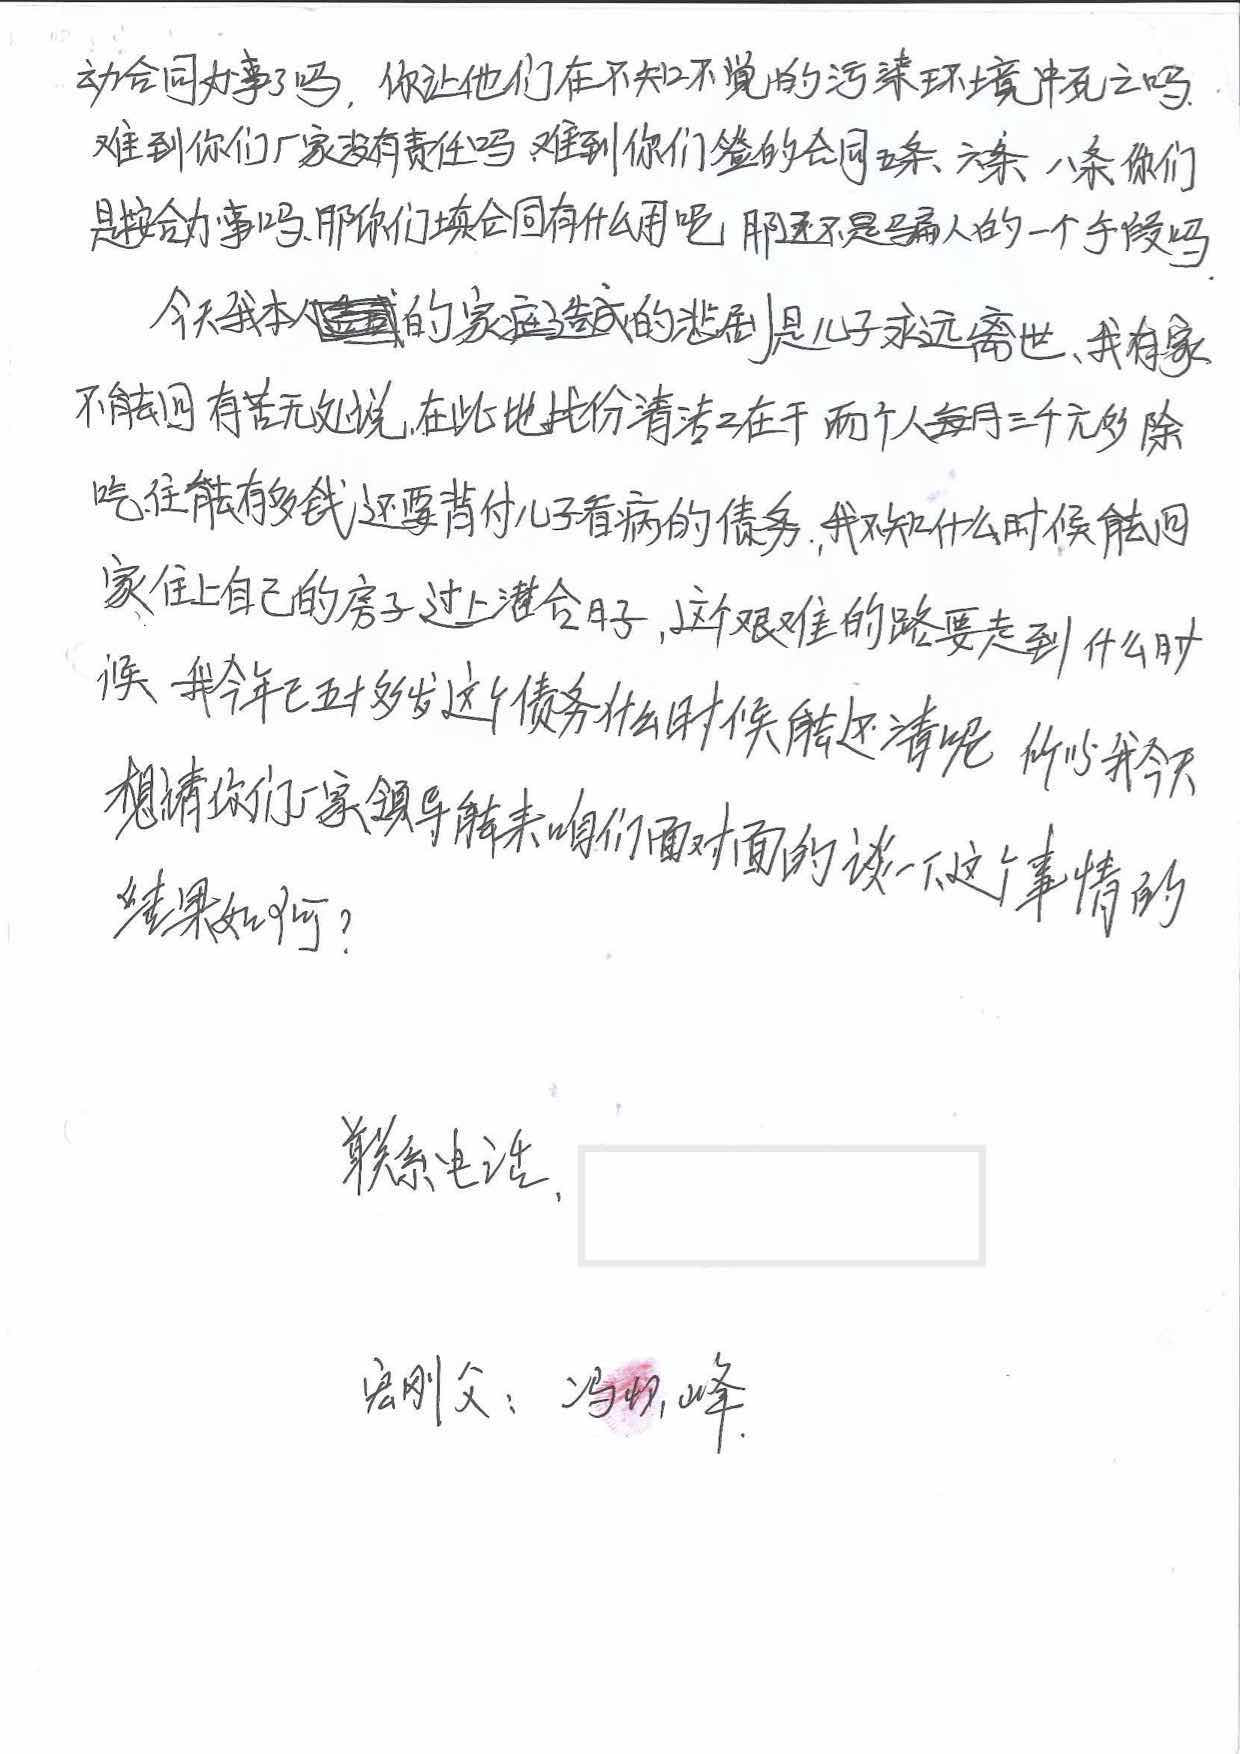 动合同办事了吗，你让他们在不知不觉的污染环境中死亡吗.
难到你们厂家没有责任吗.难到你们签的合同五条、六条、八条你们
是按合办事吗、那你们填合同有什么用呢，那还不是骗人的一个手段吗.
今天我本人的家庭造成的悲剧是儿子永远离世、我有家
不能回有苦无处说.在此地找份清洁工在干两个人每月三千元多除
吃.住能有多钱还要背付儿子看病的债务.,我不知什么时候能回
家住上自己的房子过上港合日子,这个艰难的路要走到什么时
候、我今年已五十多岁这个债务什么时候能还清呢 所以我今天
想请你们厂家领导能来咱们面对面的谈一下这个事情的
结果如何?
联系电话、
宏刚父：冯 峰.